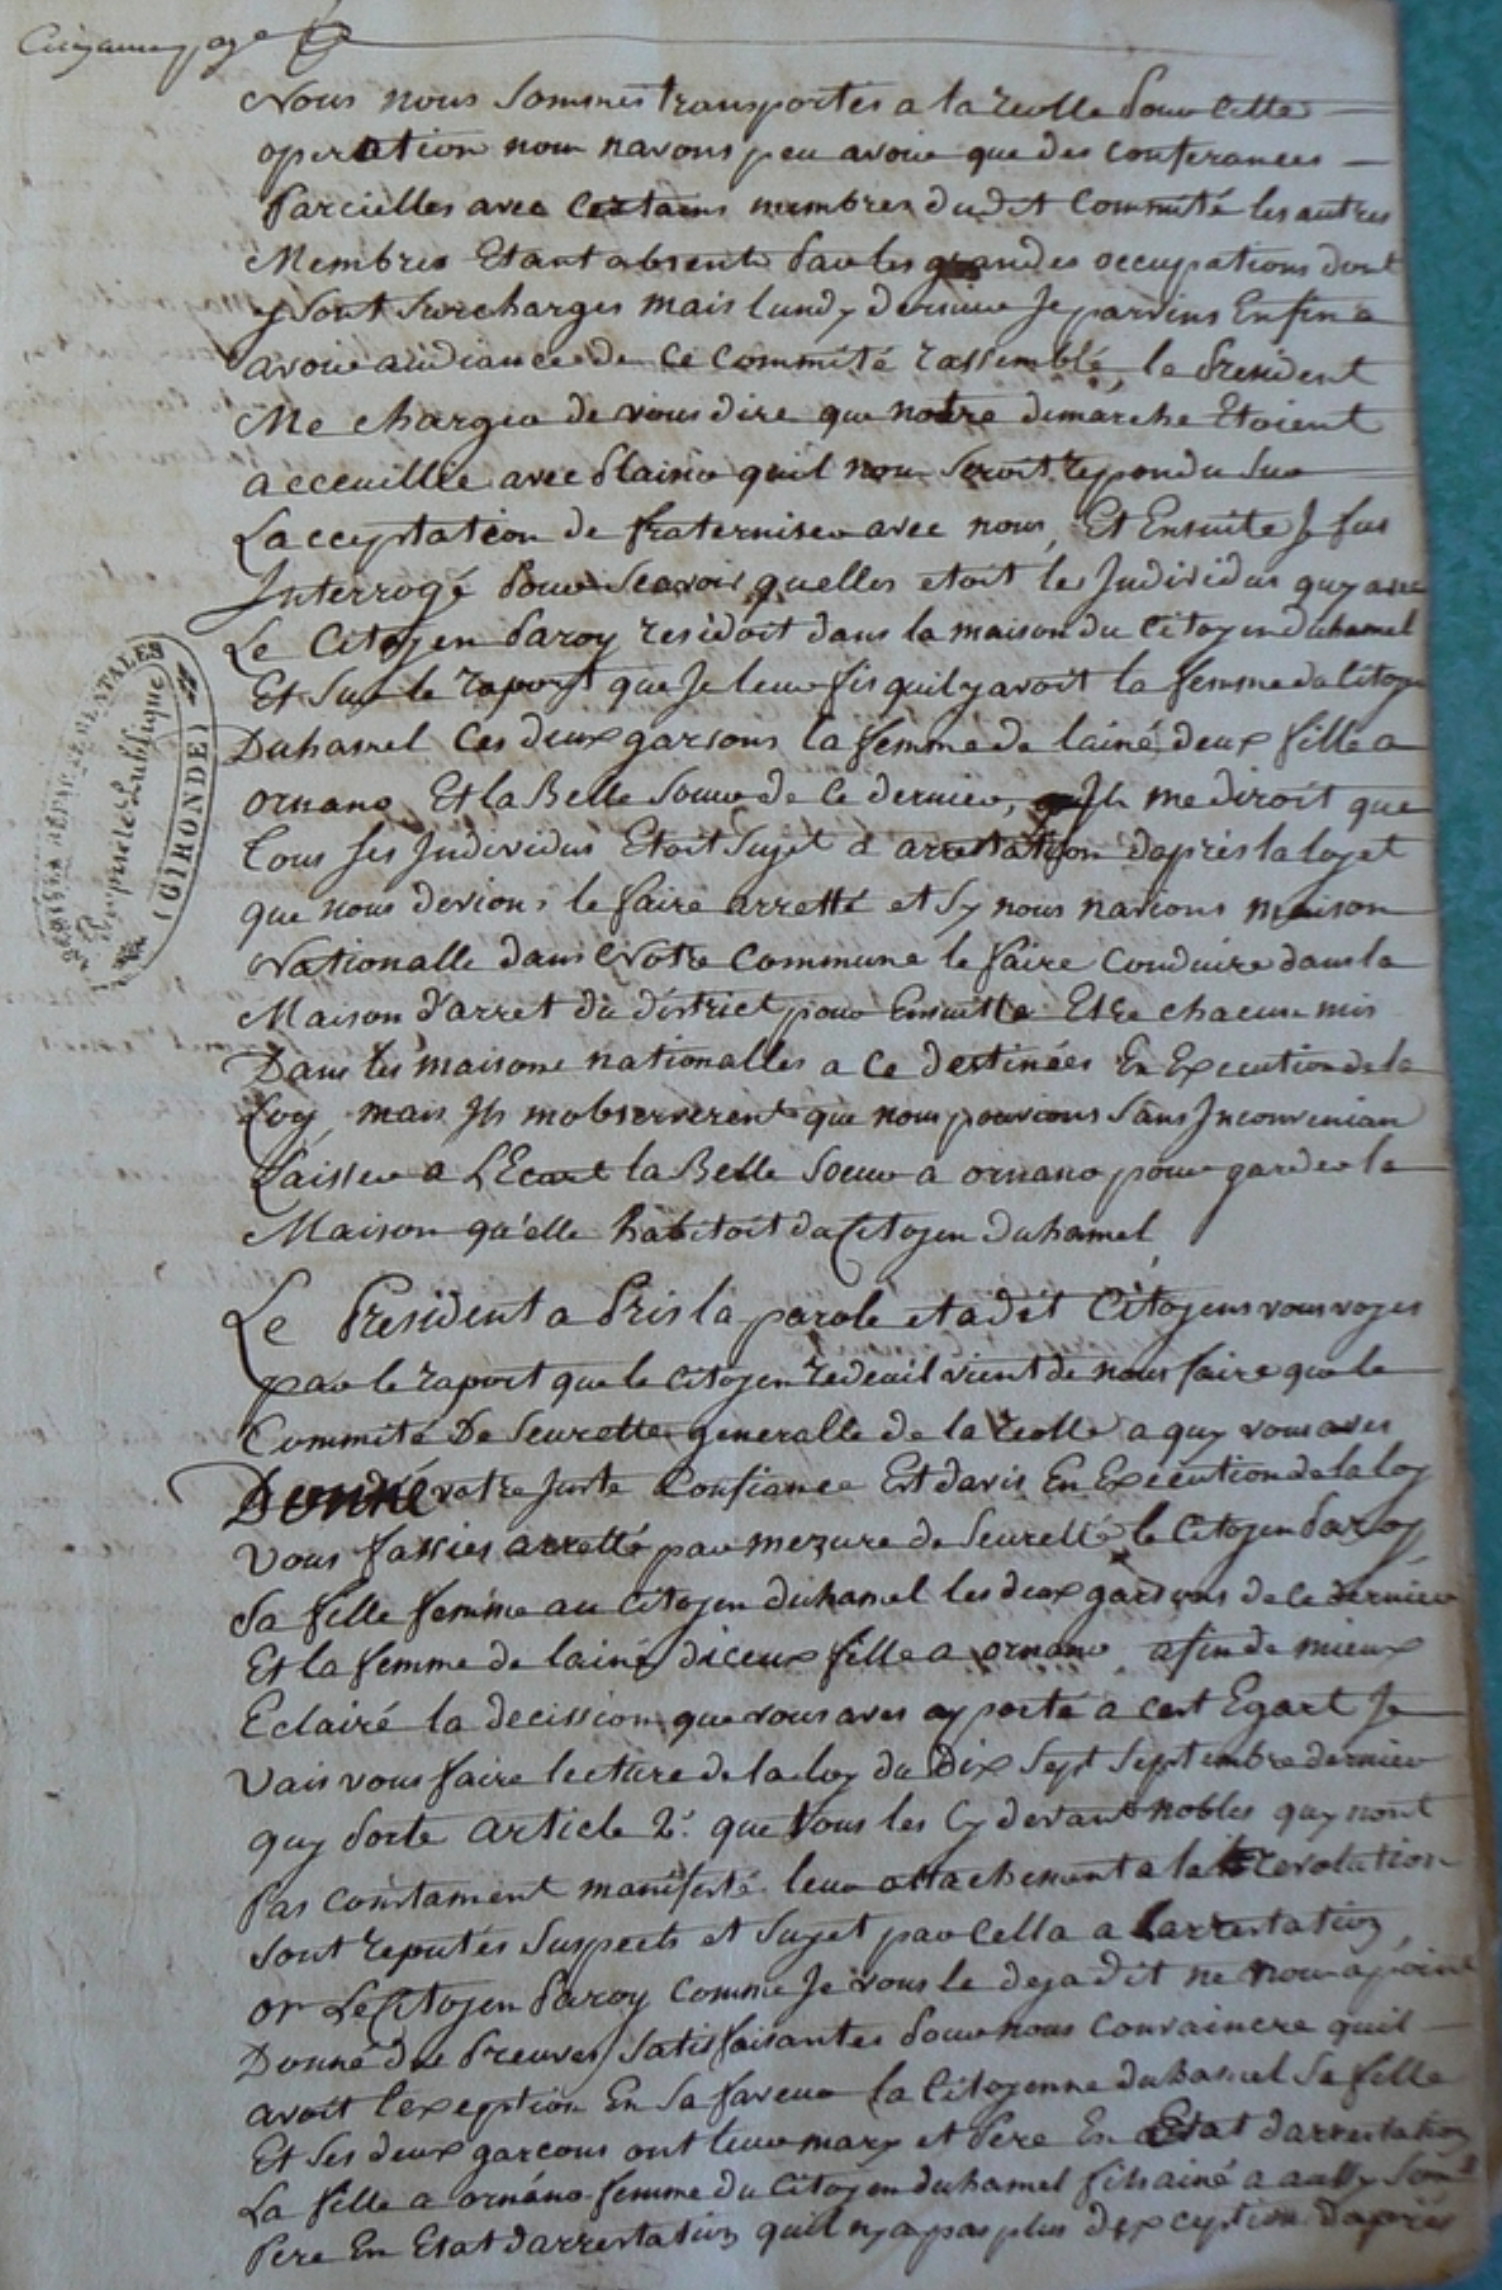 Cinqiame page
Nous nous sommes transportés a la reolle pour cette
operation nous navons peu avoir que des conferances
parcielles avec certains membres dudit Committé les autres
Membres Etant absents par les grandes occupations dont
y sont surcharges mais lundy dernier Je parvins Enfin a
avoir audiance de ce Committé rassemblé, le president
Me chargea de vous dire que notre demarche Etoient
acceuillie avec plaisir quil nous seroit repondu sur
Lacceptation de fraterniser avec nous, Et Ensuite Je fus
Interrogé pour scavoir quelles etoit les Individus quy avec
Le Citoyen paroy residoit dans la maison du Citoyen duhamel
Et sur le raport que Je leur fis quil y avoit la femme du Citoyen
Duhamel Ces deux garsons la femme de lainé deux fille a
ornano Et la Belle soeur de ce dernier, Ils me diroit que
tous ses Individus Etoit sujet a arrestation dapres la loy et
que nous devions le faire arretté et sy nous navions maison
Nationalle dans Notre Commune le faire conduire dans la
Maison d'arret du district pour Ensuitte Etre chacun mis
Dans les maisons nationalles a ce destinées En Execution de la
Loy, mais Ils mobserverent que nous pouvions sans Inconvenian
Laisser a LEcart la Belle soeur a ornano pour garder la
Maison qu'elle habitoit du Citoyen duhamel
Le President a Pris la parole et a dit Citoyens vous voyes
par le raport que le Citoyen redeuil vient de nous faire que le
Committé De seurette generalle de la reolle a quy vous aves
Donné votre juste Confiance Est davis En Execution de la loy
Vous fassies arretté par mezure de seuretté le Citoyen paroy
sa fille femme au Citoyen duhamel les deux garsons de ce dernier
Et la femme de lainé diceux fille a ornano, afin de mieux
Eclairé la decission que vous aves a porté a cert Egart Je
vais vous faire lecture de la loy du Dix sept septembre dernier
quy porte article 2e. que tous les Cy devant nobles quy nont
pas constament manifesté leur attachement a la revolution
sont reputés suspects et sujet par cella a Larrestation,
or Le Citoyen paroy comme Je vous le deja dit ne nous a point
Donné des preuves satisfaisantes pour nous convaincre quil
avoit lexeption En sa faveur la Citoyenne duhamel sa fille
Et ses deux garcons ont leur mary et Pere En Etat darrestation
La fille a ornano femme du Citoyen duhamel fils ainé a aussy son
Pere En Etat darrestation quil ny a pas plus dexception dapres
Propriété Publique
(GIRONDE)